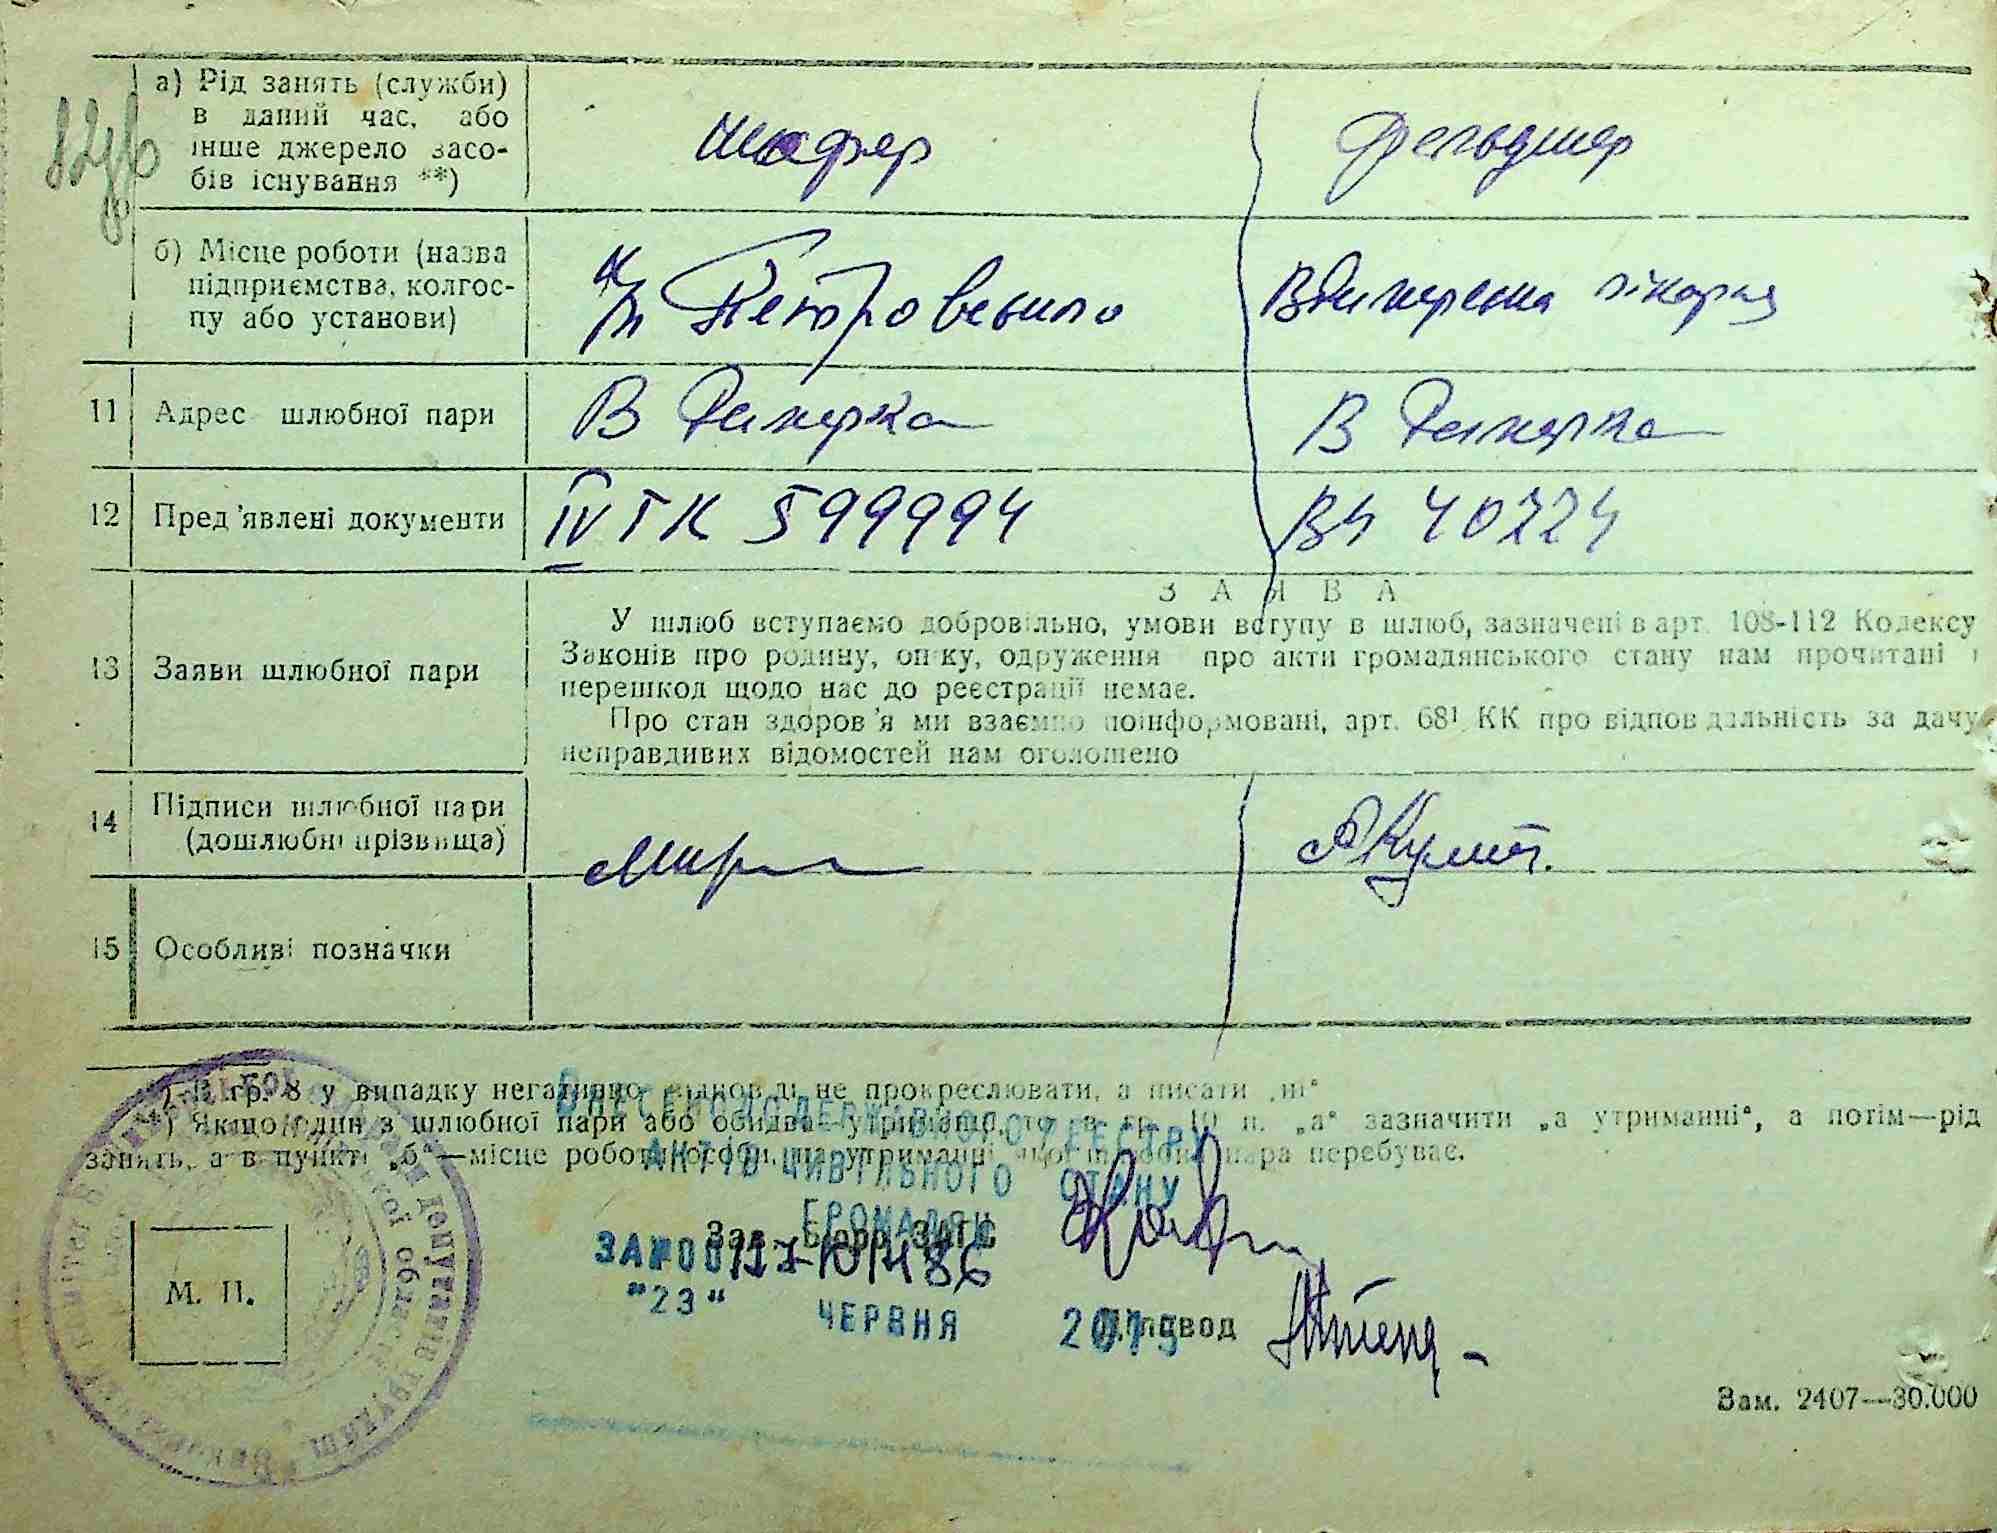 а) Рід занять (служби)
в даний час, або
інше джерело засо-
бів існування **)
шофер
фельдшер
б) Місце роботи (назва
підприємства, колгос-
пу або установи)
к/г Петровського
В Димерська лікарня
11 Адрес шлюбної пари
В Димерка
В Димерка
12 Пред'явлені документи
IV ТК 599994
ВЧ 40224
13 Заяви шлюбної пари
ЗАЯВА
У шлюб вступаємо добровільно, умови вступу в шлюб, зазначені в арт. 108-112 Кодексу
Законів про родину, опіку, одруження про акти громадянського стану нам прочитані і
перешкод щодо нас до реєстрації немає.
Про стан здоров'я ми взаємно поінформовані, арт. 68¹ КК про відповідальність за дачу
неправдивих відомостей нам оголошено
14 Підписи шлюбної пари
(дошлюбні прізвища)
15 Особливі позначки
*) В гр. 8 у випадку негативної відповіді не прокреслювати, а писати „ні“
**) Якщо один з шлюбної пари або обидва—утриманці, то в гр. 10 п. „а“ зазначити „а утриманні“, а потім—рід
занять, а в пункті „б“—місце роботи особи, на утриманні якої шлюбна пара перебуває.
ВНЕСЕНО ДО ДЕРЖАВНОГО РЕЄСТРУ
АКТІВ ЦИВІЛЬНОГО СТАНУ
ГРОМАДЯН
Зав. Бюро ЗАГС
ЗА №00
"23" ЧЕРВНЯ 2015
Діловод
М. П.
Зам. 2407—30.000